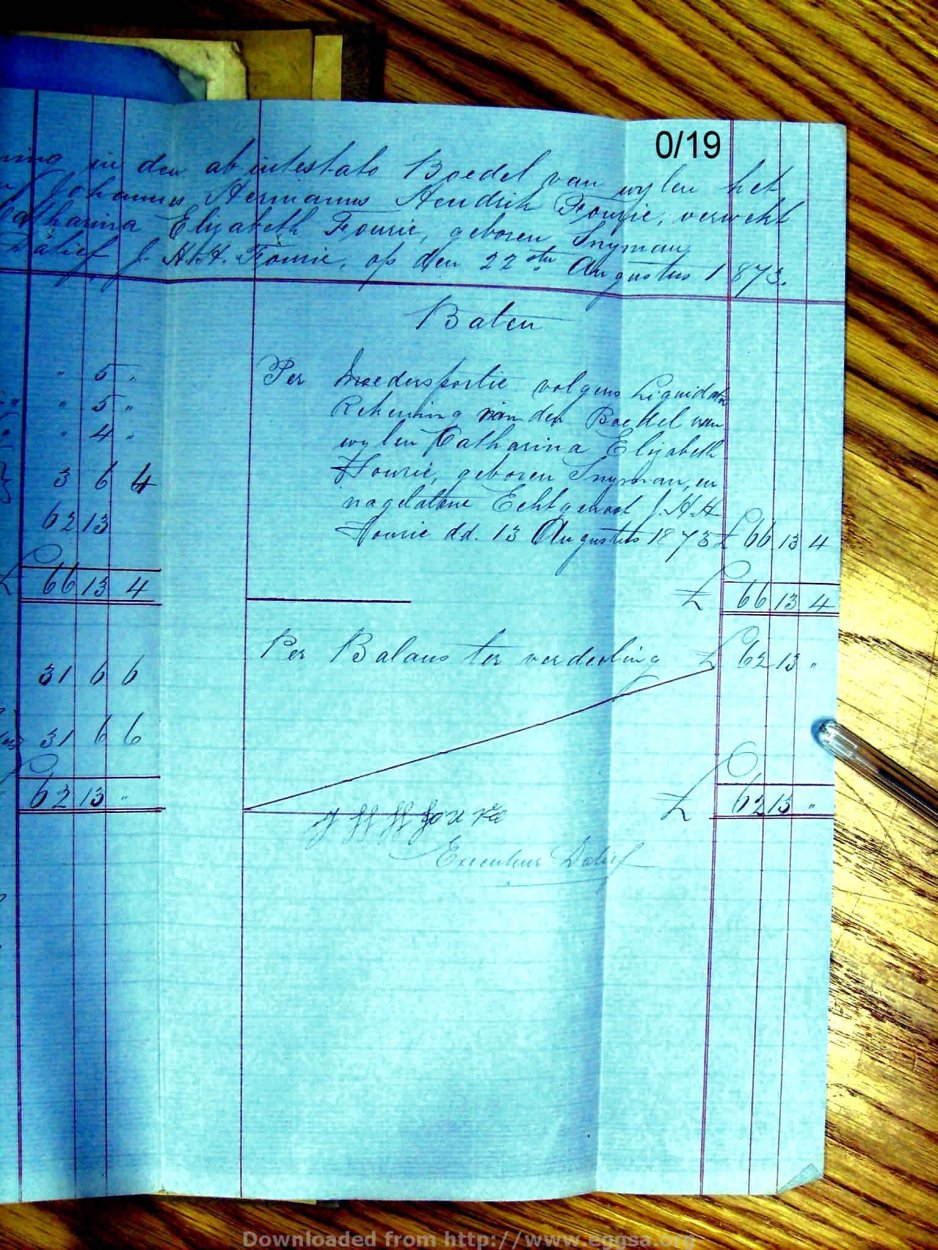 0/19
in den ab intestato Boedel van wylen het
Johannes Hermanus Hendrik Fourie, verwekt
Catharina Elizabeth Fourie, geboren Snyman,
Datief J. H. H. Fourie, op den 22ste Augustus 1873.
Baten
" 5 "
Per Moedersportie volgens Liquidatie
" 5 "
Rekening van den Boedel van
" 4 "
wylen Catharina Elizabeth
3 6 4
Fourie, geboren Snyman, en
nagelatene Echtgenoot J. H. H.
62 13
Fourie dd. 13 Augustus 1873 £ 66 13 4
£ 66 13 4
£ 66 13 4
Per Balans ter verdeeling £ 62 13 "
31 6 6
31 6 6
62 13 "
£ 62 13 "
J H H Fourie
Executeur Datief
Downloaded from http://www.eggsa.org